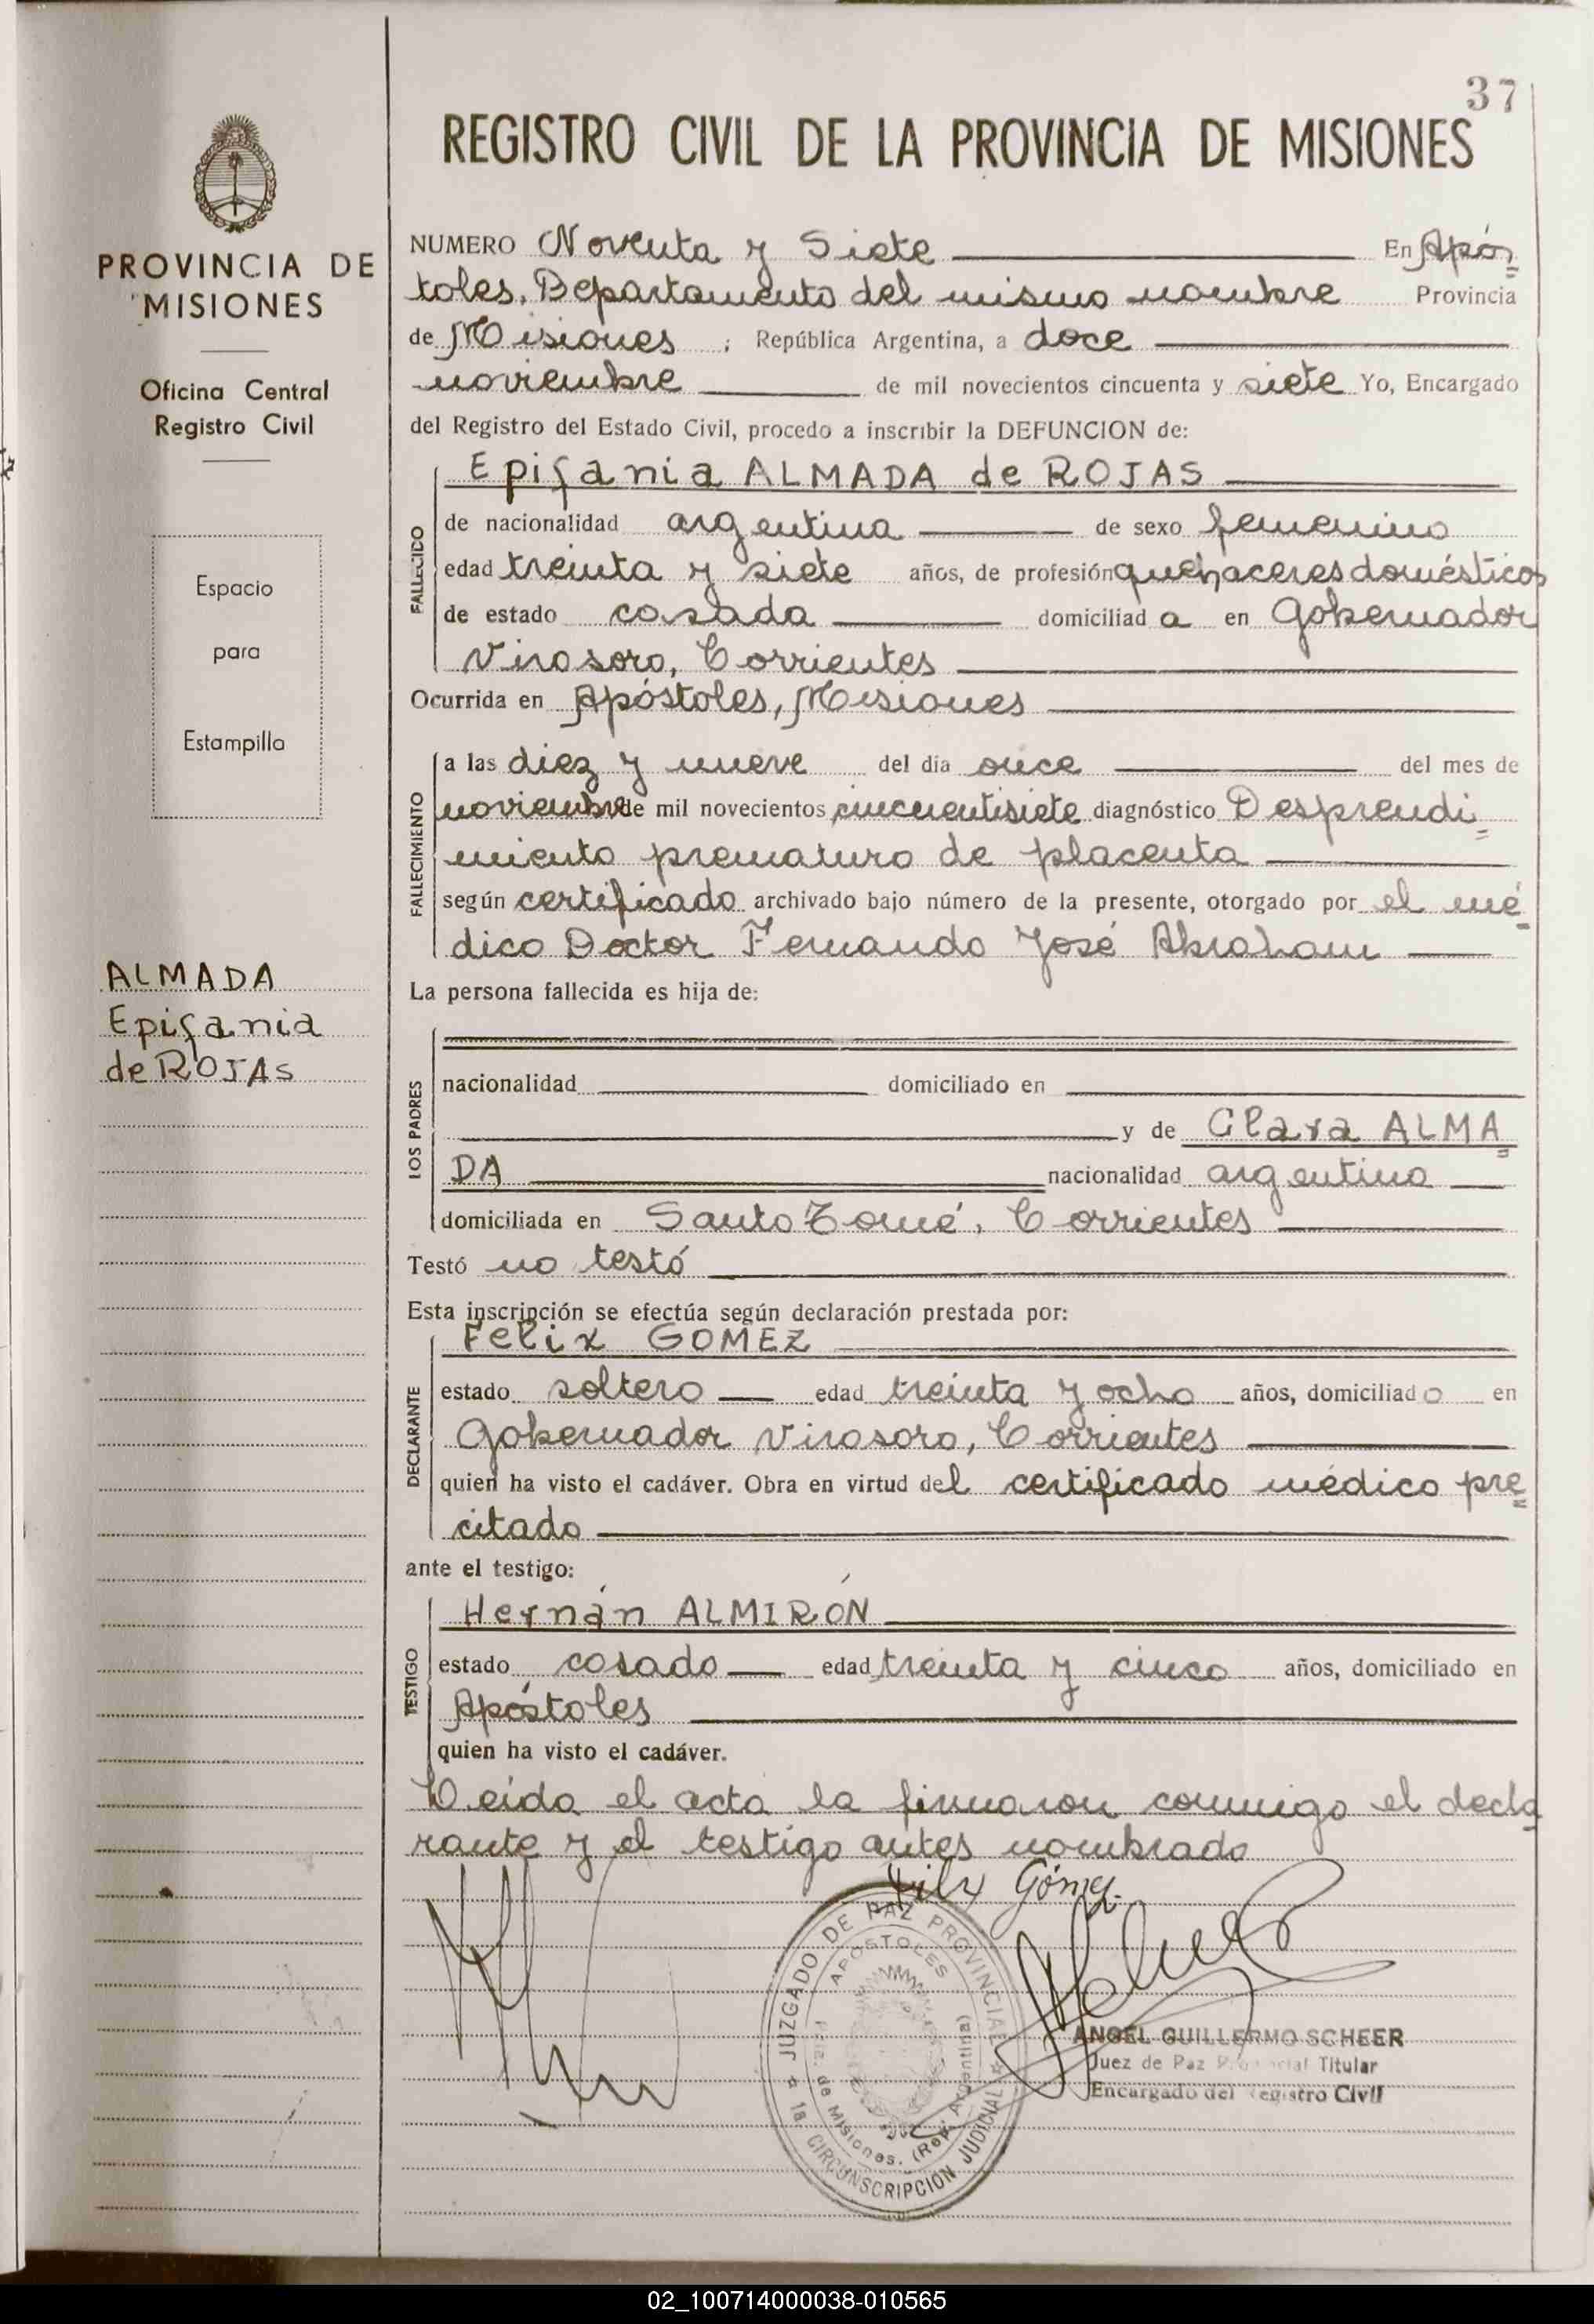 37
REGISTRO CIVIL DE LA PROVINCIA DE MISIONES
PROVINCIA DE
MISIONES
Oficina Central
Registro Civil
Espacio
para
Estampilla
ALMADA
Epifania
de ROJAS
NUMERO Noventa y Siete En Após
toles, Departamento del mismo nombre Provincia
de Misiones ; República Argentina, a doce
noviembre de mil novecientos cincuenta y siete Yo, Encargado
del Registro del Estado Civil, procedo a inscribir la DEFUNCION de:
FALLECIDO
Epifania ALMADA de ROJAS
de nacionalidad argentina de sexo femenino
edad treinta y siete años, de profesión quehaceres domésticos
de estado casada domiciliad a en Gobernador
Virasoro, Corrientes
Ocurrida en Apóstoles, Misiones
FALLECIMIENTO
a las diez y nueve del día once del mes de
noviembre de mil novecientos cincuentisiete diagnóstico Desprendi=
miento prematuro de placenta
según certificado archivado bajo número de la presente, otorgado por el mé=
dico Doctor Fernando José Abraham
La persona fallecida es hija de:
LOS PADRES
nacionalidad domiciliado en
y de Clara ALMA=
DA nacionalidad argentina
domiciliada en Santo Tomé, Corrientes
Testó no testó
Esta inscripción se efectúa según declaración prestada por:
DECLARANTE
Felix GOMEZ
estado soltero edad treinta y ocho años, domiciliado en
Gobernador Virasoro, Corrientes
quien ha visto el cadáver. Obra en virtud del certificado médico pre=
citado
ante el testigo:
TESTIGO
Hernán ALMIRÓN
estado casado edad treinta y cinco años, domiciliado en
Apóstoles
quien ha visto el cadáver.
Leída el acta la firmaron conmigo el decla
rante y el testigo antes nombrado
Felix Gómez.
JUZGADO DE PAZ PROVINCIAL
APOSTOLES
de Misiones. (Rep. Argentina)
1a CIRCUNSCRIPCIÓN JUDICIAL
ANGEL GUILLERMO SCHEER
Juez de Paz Provincial Titular
Encargado del Registro Civil
02_100714000038-010565